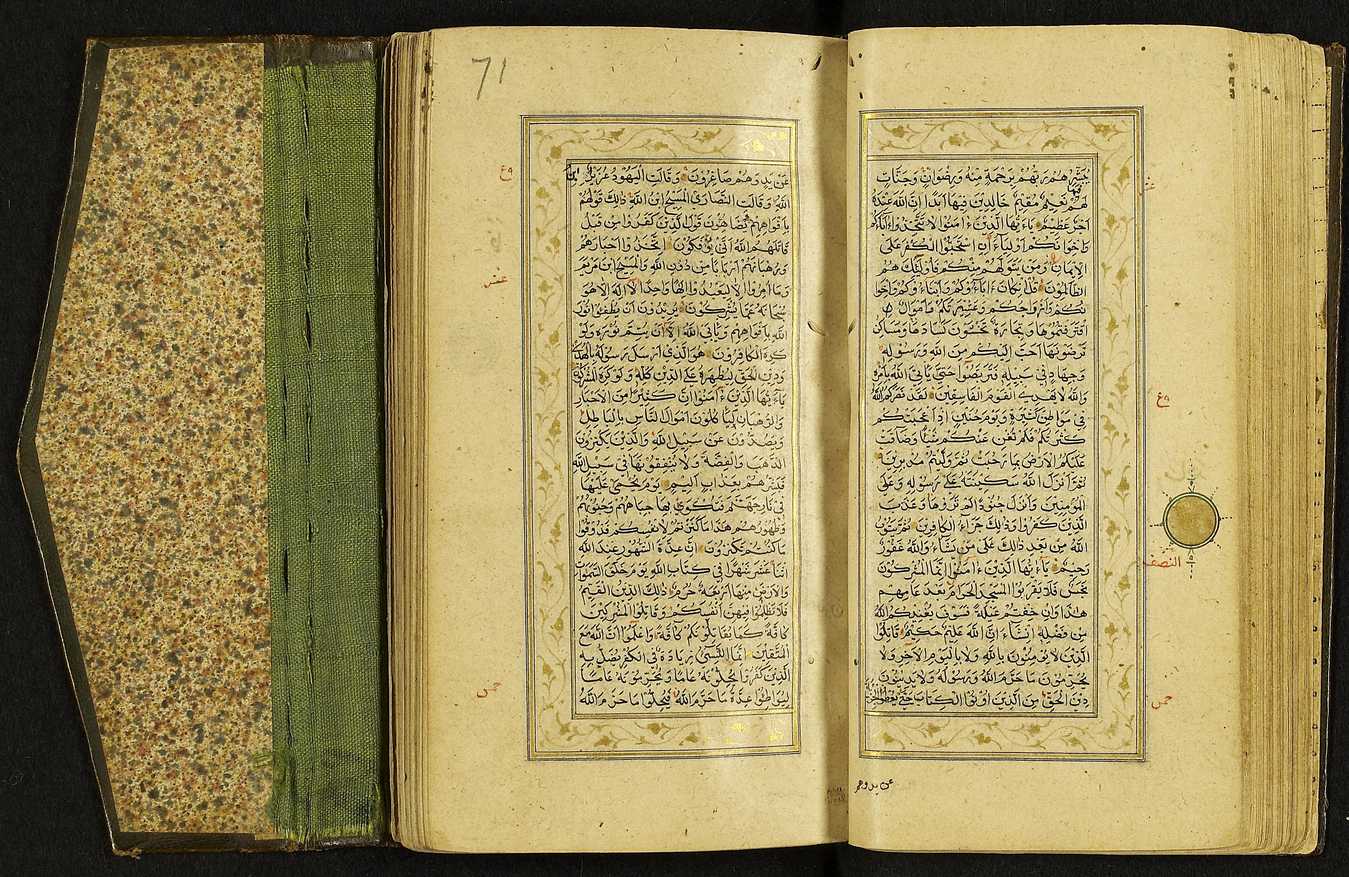 يُبَشِّرُهُمْ رَبُّهُمْ بِرَحْمَةٍ مِنْهُ وَرِضْوَانٍ وَجَنَّاتٍ
لَهُمْ فِيهَا نَعِيمٌ مُقِيمٌ خَالِدِينَ فِيهَا أَبَدًا إِنَّ اللَّهَ عِنْدَهُ
أَجْرٌ عَظِيمٌ يَاءَيُّهَا الَّذِينَ ءَامَنُوا لَا تَتَّخِذُوا ءَابَاءَكُمْ
وَإِخْوَانَكُمْ أَوْلِيَاءَ إِنِ اسْتَحَبُّوا الْكُفْرَ عَلَى
الْإِيمَانِ وَمَنْ يَتَوَلَّهُمْ مِنْكُمْ فَأُولَئِكَ هُمُ
الظَّالِمُونَ قُلْ إِنْ كَانَ ءَابَاؤُكُمْ وَأَبْنَاؤُكُمْ وَإِخْوَا
نُكُمْ وَأَزْوَاجُكُمْ وَعَشِيرَتُكُمْ وَأَمْوَالٌ
اقْتَرَفْتُمُوهَا وَتِجَارَةٌ تَخْشَوْنَ كَسَادَهَا وَمَسَاكِنُ
تَرْضَوْنَهَا أَحَبَّ إِلَيْكُمْ مِنَ اللَّهِ وَرَسُولِهِ
وَجِهَادٍ فِي سَبِيلِهِ فَتَرَبَّصُوا حَتَّى يَأْتِيَ اللَّهُ بِأَمْرِهِ
وَاللَّهُ لَا يَهْدِي الْقَوْمَ الْفَاسِقِينَ لَقَدْ نَصَرَكُمُ اللَّهُ
فِي مَوَاطِنَ كَثِيرَةٍ وَيَوْمَ حُنَيْنٍ إِذْ أَعْجَبَتْكُمْ
كَثْرَتُكُمْ فَلَمْ تُغْنِ عَنْكُمْ شَيْئًا وَضَاقَتْ
عَلَيْكُمُ الْأَرْضُ بِمَا رَحُبَتْ ثُمَّ وَلَّيْتُمْ مُدْبِرِينَ
ثُمَّ أَنْزَلَ اللَّهُ سَكِينَتَهُ عَلَى رَسُولِهِ وَعَلَى
الْمُؤْمِنِينَ وَأَنْزَلَ جُنُودًا لَمْ تَرَوْهَا وَعَذَّبَ
الَّذِينَ كَفَرُوا وَذَلِكَ جَزَاءُ الْكَافِرِينَ ثُمَّ يَتُوبُ
اللَّهُ مِنْ بَعْدِ ذَلِكَ عَلَى مَنْ يَشَاءُ وَاللَّهُ غَفُورٌ
رَحِيمٌ يَاءَيُّهَا الَّذِينَ ءَامَنُوا إِنَّمَا الْمُشْرِكُونَ
نَجَسٌ فَلَا يَقْرَبُوا الْمَسْجِدَ الْحَرَامَ بَعْدَ عَامِهِمْ
هَذَا وَإِنْ خِفْتُمْ عَيْلَةً فَسَوْفَ يُغْنِيكُمُ اللَّهُ
مِنْ فَضْلِهِ إِنْ شَاءَ إِنَّ اللَّهَ عَلِيمٌ حَكِيمٌ قَاتِلُوا
الَّذِينَ لَا يُؤْمِنُونَ بِاللَّهِ وَلَا بِالْيَوْمِ الْآخِرِ وَلَا
يُحَرِّمُونَ مَا حَرَّمَ اللَّهُ وَرَسُولُهُ وَلَا يَدِينُونَ
دِينَ الْحَقِّ مِنَ الَّذِينَ أُوتُوا الْكِتَابَ حَتَّى يُعْطُوا الْجِزْيَةَ
عن يد وهم
النصف
خمس
71
عَنْ يَدٍ وَهُمْ صَاغِرُونَ وَقَالَتِ الْيَهُودُ عُزَيْرٌ ابْنُ
اللَّهِ وَقَالَتِ النَّصَارَى الْمَسِيحُ ابْنُ اللَّهِ ذَلِكَ قَوْلُهُمْ
بِأَفْوَاهِهِمْ يُضَاهِئُونَ قَوْلَ الَّذِينَ كَفَرُوا مِنْ قَبْلُ
قَاتَلَهُمُ اللَّهُ أَنَّى يُؤْفَكُونَ اتَّخَذُوا أَحْبَارَهُمْ
وَرُهْبَانَهُمْ أَرْبَابًا مِنْ دُونِ اللَّهِ وَالْمَسِيحَ ابْنَ مَرْيَمَ
وَمَا أُمِرُوا إِلَّا لِيَعْبُدُوا إِلَهًا وَاحِدًا لَا إِلَهَ إِلَّا هُوَ
سُبْحَانَهُ عَمَّا يُشْرِكُونَ يُرِيدُونَ أَنْ يُطْفِئُوا نُورَ
اللَّهِ بِأَفْوَاهِهِمْ وَيَأْبَى اللَّهُ إِلَّا أَنْ يُتِمَّ نُورَهُ وَلَوْ
كَرِهَ الْكَافِرُونَ هُوَ الَّذِي أَرْسَلَ رَسُولَهُ بِالْهُدَى
وَدِينِ الْحَقِّ لِيُظْهِرَهُ عَلَى الدِّينِ كُلِّهِ وَلَوْ كَرِهَ الْمُشْرِكُونَ
يَاءَيُّهَا الَّذِينَ ءَامَنُوا إِنَّ كَثِيرًا مِنَ الْأَحْبَارِ
وَالرُّهْبَانِ لَيَأْكُلُونَ أَمْوَالَ النَّاسِ بِالْبَاطِلِ
وَيَصُدُّونَ عَنْ سَبِيلِ اللَّهِ وَالَّذِينَ يَكْنِزُونَ
الذَّهَبَ وَالْفِضَّةَ وَلَا يُنْفِقُونَهَا فِي سَبِيلِ اللَّهِ
فَبَشِّرْهُمْ بِعَذَابٍ أَلِيمٍ يَوْمَ يُحْمَى عَلَيْهَا
فِي نَارِ جَهَنَّمَ فَتُكْوَى بِهَا جِبَاهُهُمْ وَجُنُوبُهُمْ
وَظُهُورُهُمْ هَذَا مَا كَنَزْتُمْ لِأَنْفُسِكُمْ فَذُوقُوا
مَا كُنْتُمْ تَكْنِزُونَ إِنَّ عِدَّةَ الشُّهُورِ عِنْدَ اللَّهِ
اثْنَا عَشَرَ شَهْرًا فِي كِتَابِ اللَّهِ يَوْمَ خَلَقَ السَّمَوَاتِ
وَالْأَرْضَ مِنْهَا أَرْبَعَةٌ حُرُمٌ ذَلِكَ الدِّينُ الْقَيِّمُ
فَلَا تَظْلِمُوا فِيهِنَّ أَنْفُسَكُمْ وَقَاتِلُوا الْمُشْرِكِينَ
كَافَّةً كَمَا يُقَاتِلُونَكُمْ كَافَّةً وَاعْلَمُوا أَنَّ اللَّهَ مَعَ
الْمُتَّقِينَ إِنَّمَا النَّسِيءُ زِيَادَةٌ فِي الْكُفْرِ يُضَلُّ بِهِ
الَّذِينَ كَفَرُوا يُحِلُّونَهُ عَامًا وَيُحَرِّمُونَهُ عَامًا
لِيُوَاطِئُوا عِدَّةَ مَا حَرَّمَ اللَّهُ فَيُحِلُّوا مَا حَرَّمَ اللَّهُ
عشر
خمس